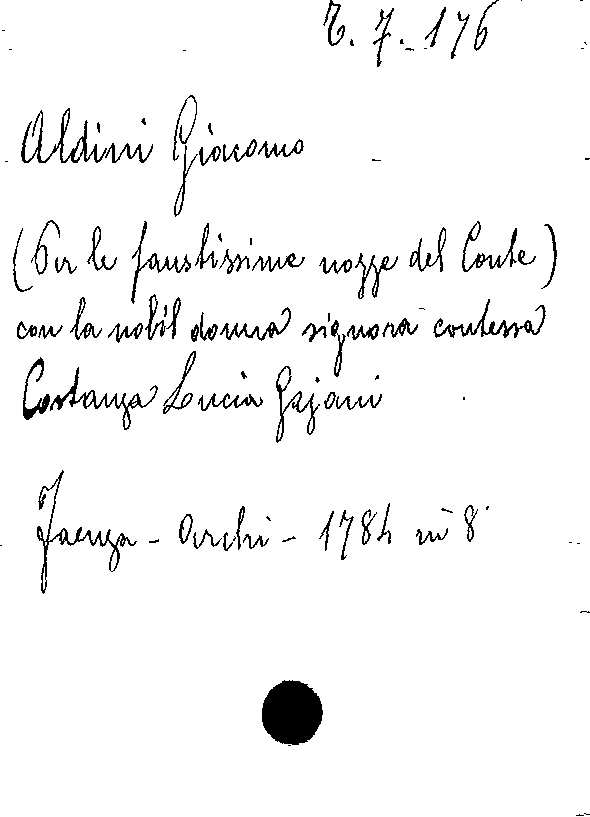 T. 7. 176
Aldini Giacomo
(Per le faustissime nozze del Conte)
con la nobil donna signora contessa
Costanza Lucia Gajani
Faenza - Archi - 1784 in 8°